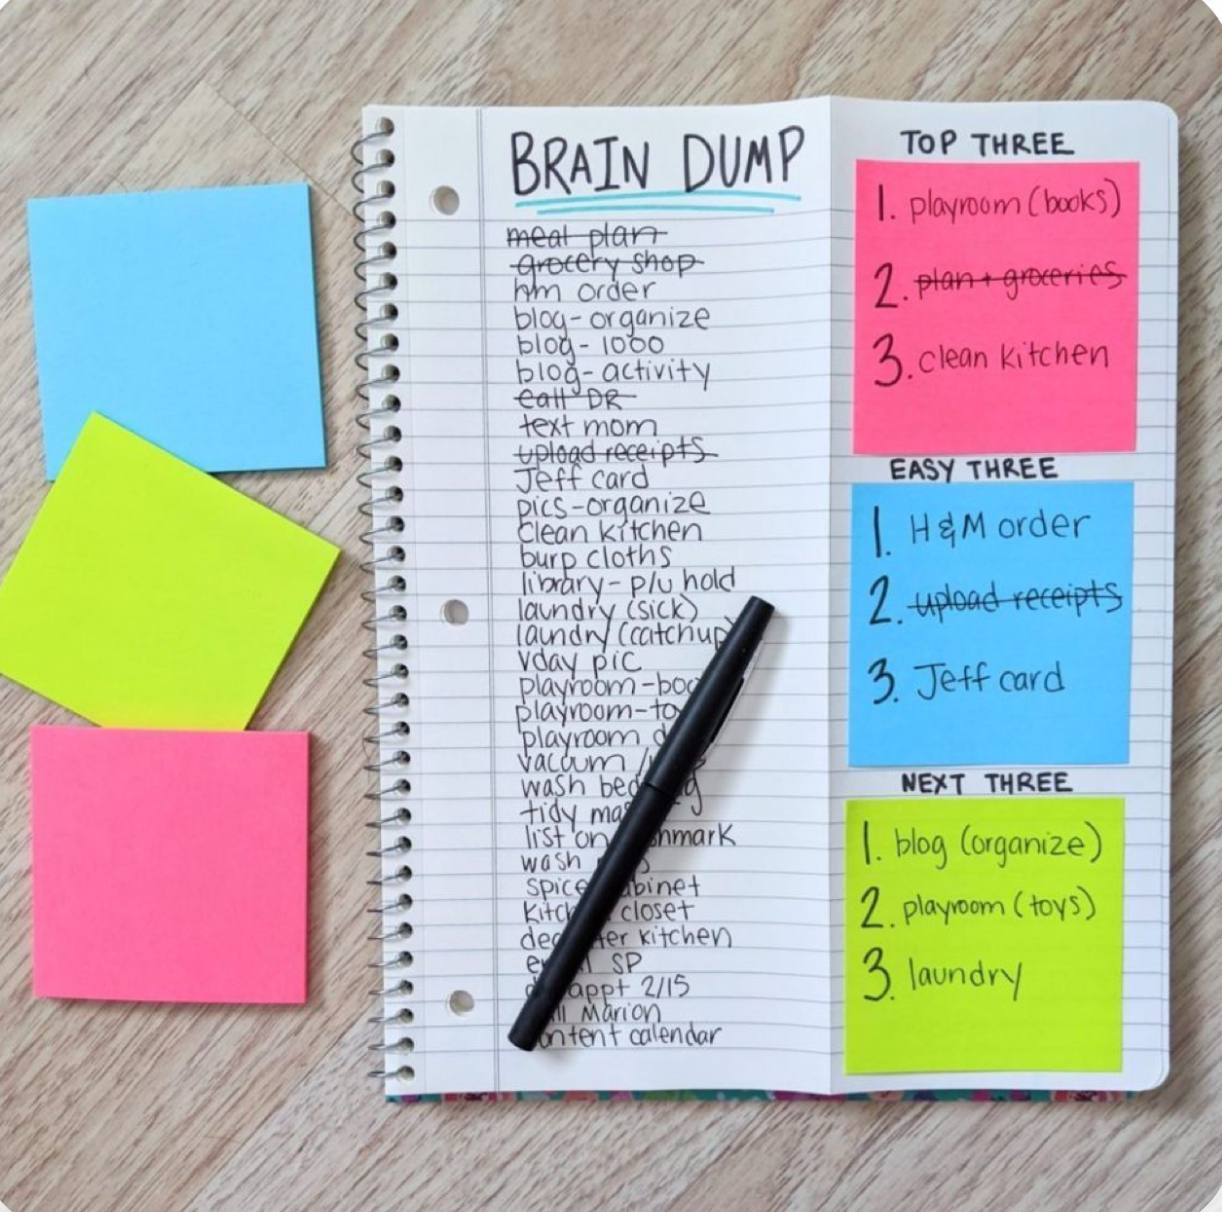 BRAIN DUMP
meal plan
grocery shop
hm order
blog-organize
blog-1000
blog-activity
call DR
text mom
upload receipts
Jeff card
pics-organize
clean kitchen
burp cloths
library-p/u hold
laundry (sick)
laundry (catchup)
vday pic
playroom-
playroom-
playroom
vacuum /
wash
tidy
list on
wash
spice cabinet
kitchen closet
kitchen
SP
appt 2/15
Marion
content calendar
TOP THREE
1. playroom (books)
2. plan + groceries
3. clean kitchen
EASY THREE
1. H&M order
2. upload receipts
3. Jeff card
NEXT THREE
1. blog (organize)
2. playroom (toys)
3. laundry